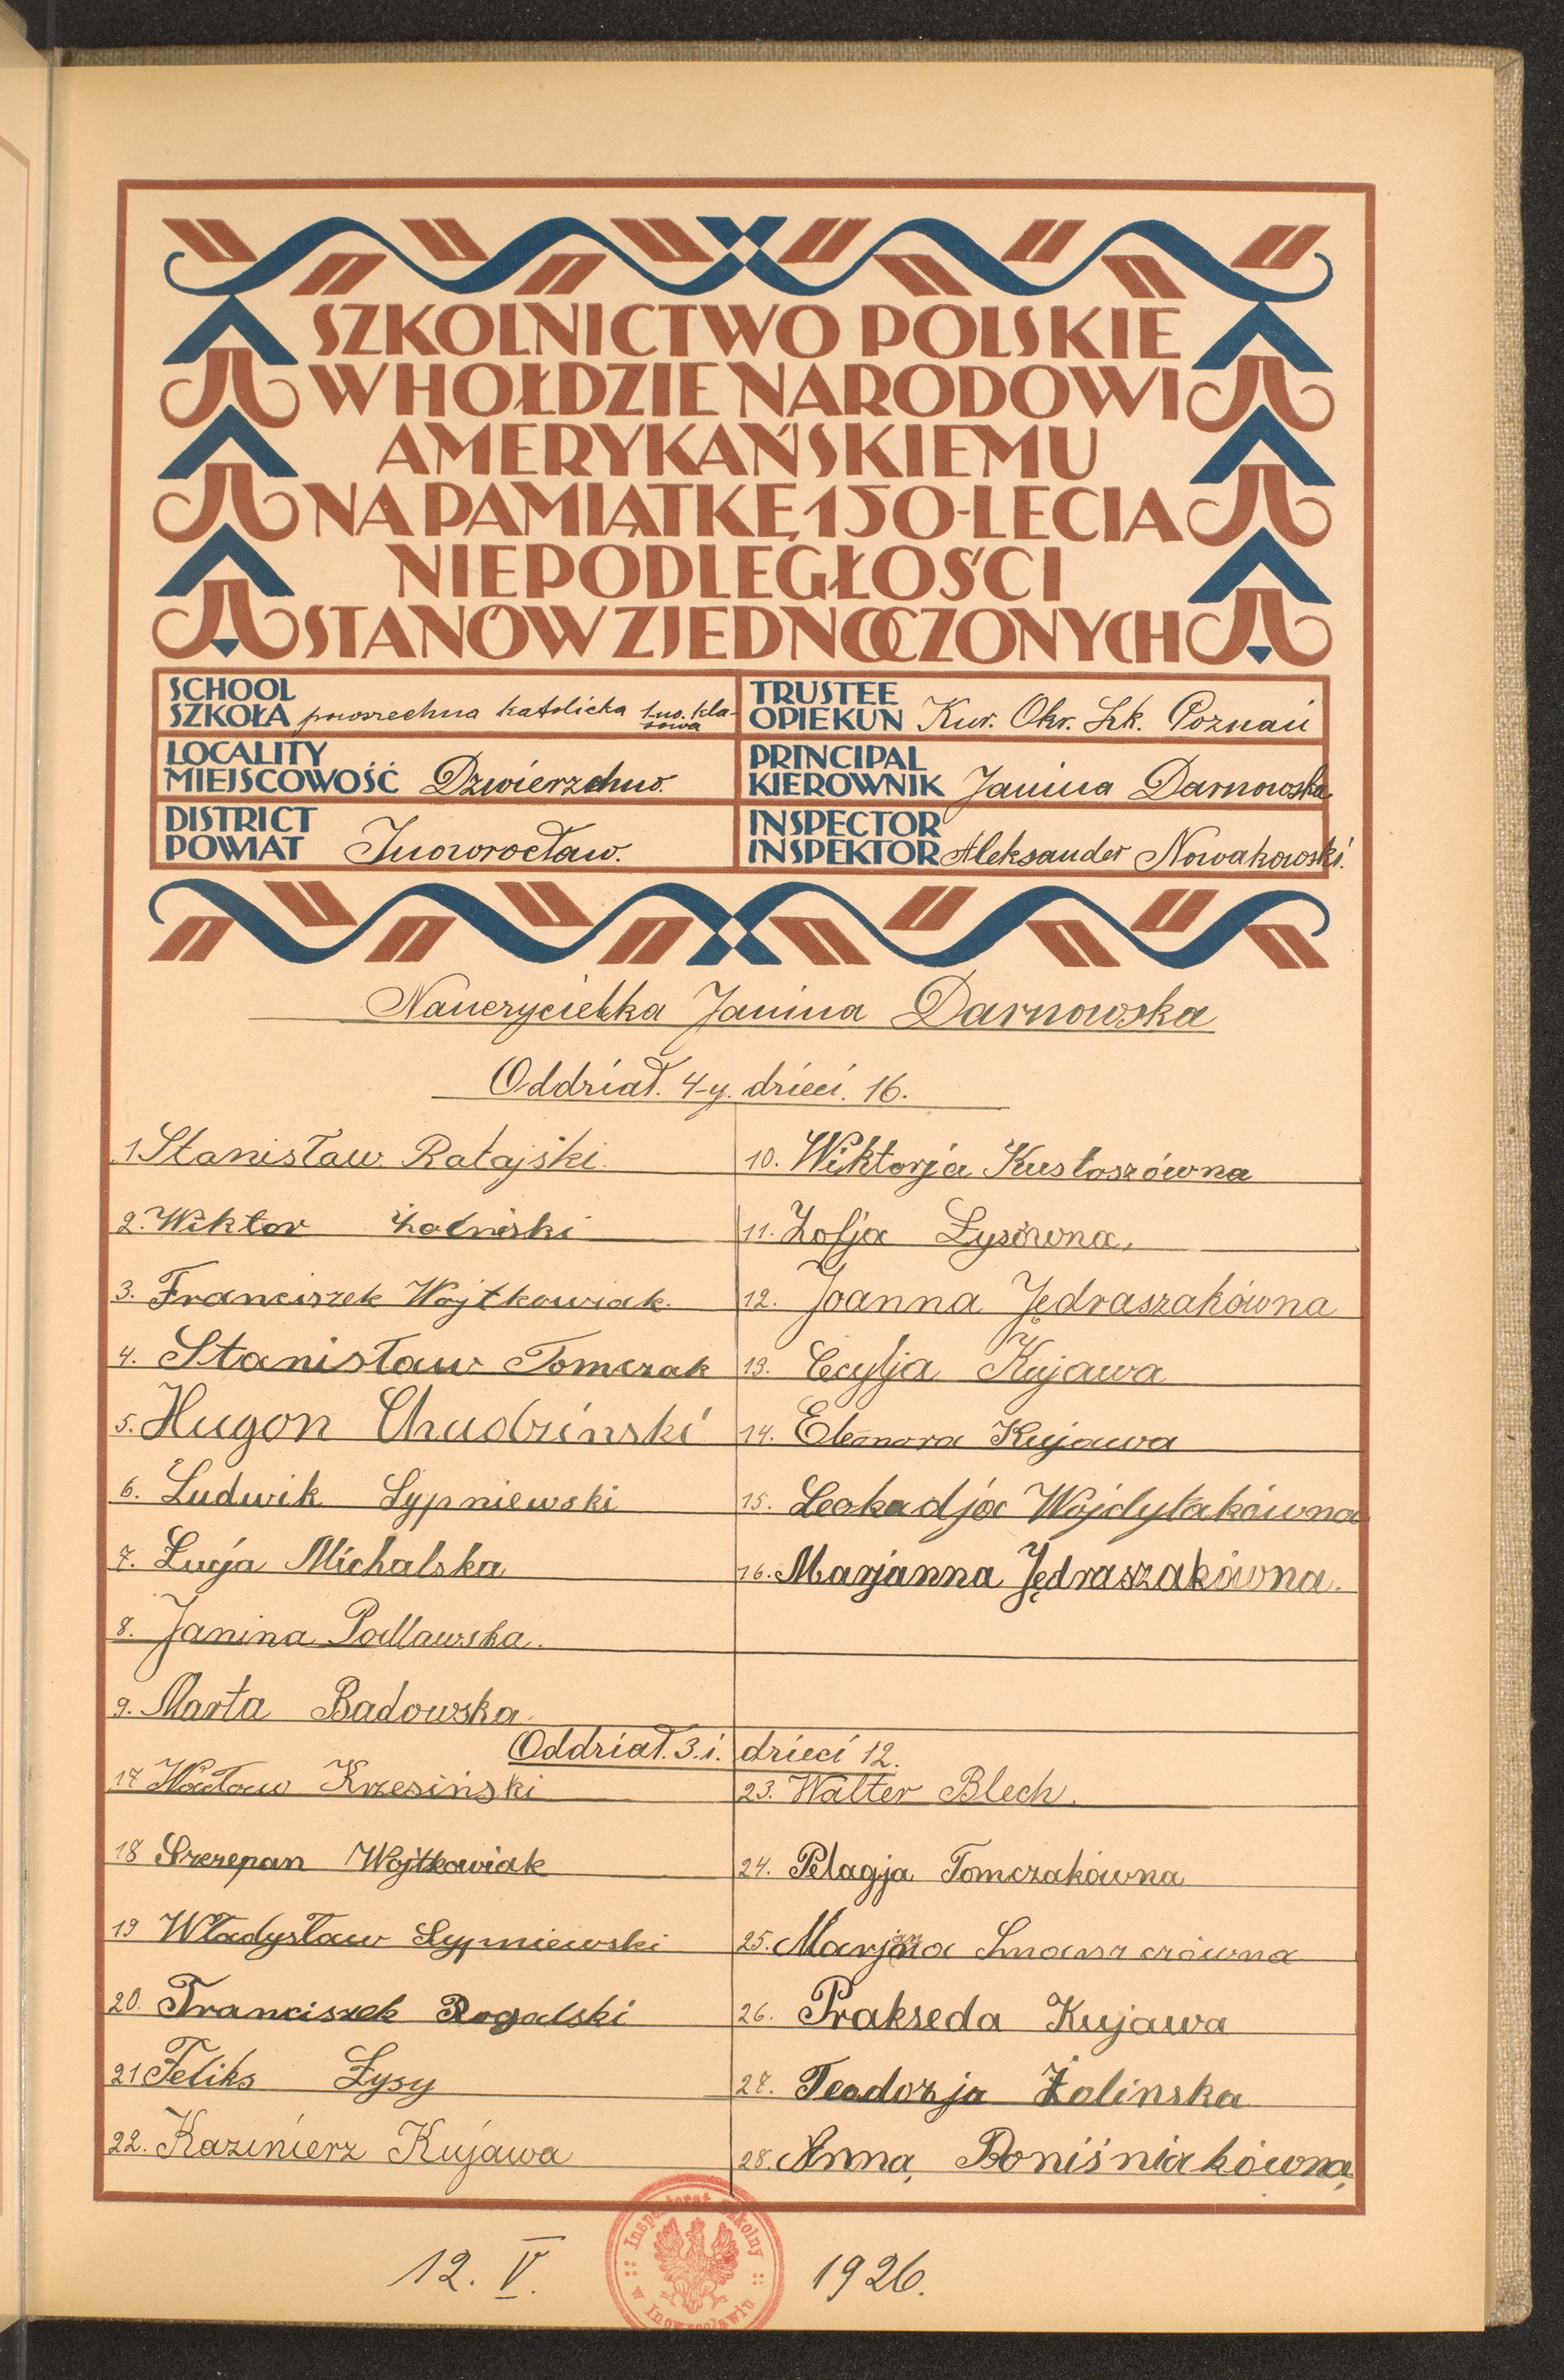 SZKOLNICTWO POLSKIE
W HOŁDZIE NARODOWI
AMERYKAŃSKIEMU
NA PAMIĄTKĘ 150-LECIA
NIEPODLEGŁOŚCI
STANÓW ZJEDNOCZONYCH
SCHOOL
SZKOŁA powszechna katolicka 1-no. kla-
sowa
TRUSTEE
OPIEKUN Kur. Okr. Szk. Poznań
LOCALITY
MIEJSCOWOŚĆ Dzwierzchno.
PRINCIPAL
KIEROWNIK Janina Darnowska
DISTRICT
POWIAT Inowrocław.
INSPECTOR
INSPEKTOR Aleksander Nowakowski.
Nauczycielka Janina Darnowska
Oddział. 4-y. dzieci. 16.
1 Stanisław Ratajski.
2. Wiktor Żoliński
3. Franciszek Wojtkowiak.
4. Stanisław Tomczak
5. Hugon Chudziński
6. Ludwik Sypniewski
7. Łucja Michalska
8. Janina Podlawska.
9. Marta Badowska.
10. Wiktorja Kustoszówna
11. Zofja Łysówna.
12. Joanna Jędraszakówna
13. Cecylja Kujawa
14. Eleonora Kujawa
15. Leokadja Wojdylakówna
16. Marjanna Jędraszakówna.
Oddział. 3. i. dzieci 12.
17 Wacław Krzesiński
18 Szczepan Wojtkowiak
19 Władysław Sypniewski
20. Franciszek Rogalski
21 Feliks Łysy
22. Kazimierz Kujawa
23. Walter Blech.
24. Pelagja Tomczakówna
25. Marjanna
26. Prakseda Kujawa
27. Teodozja Żolinska
28. Anna Boniśniakówna
12. V. 1926.
Inspektorat Szkolny
w Inowrocławiu